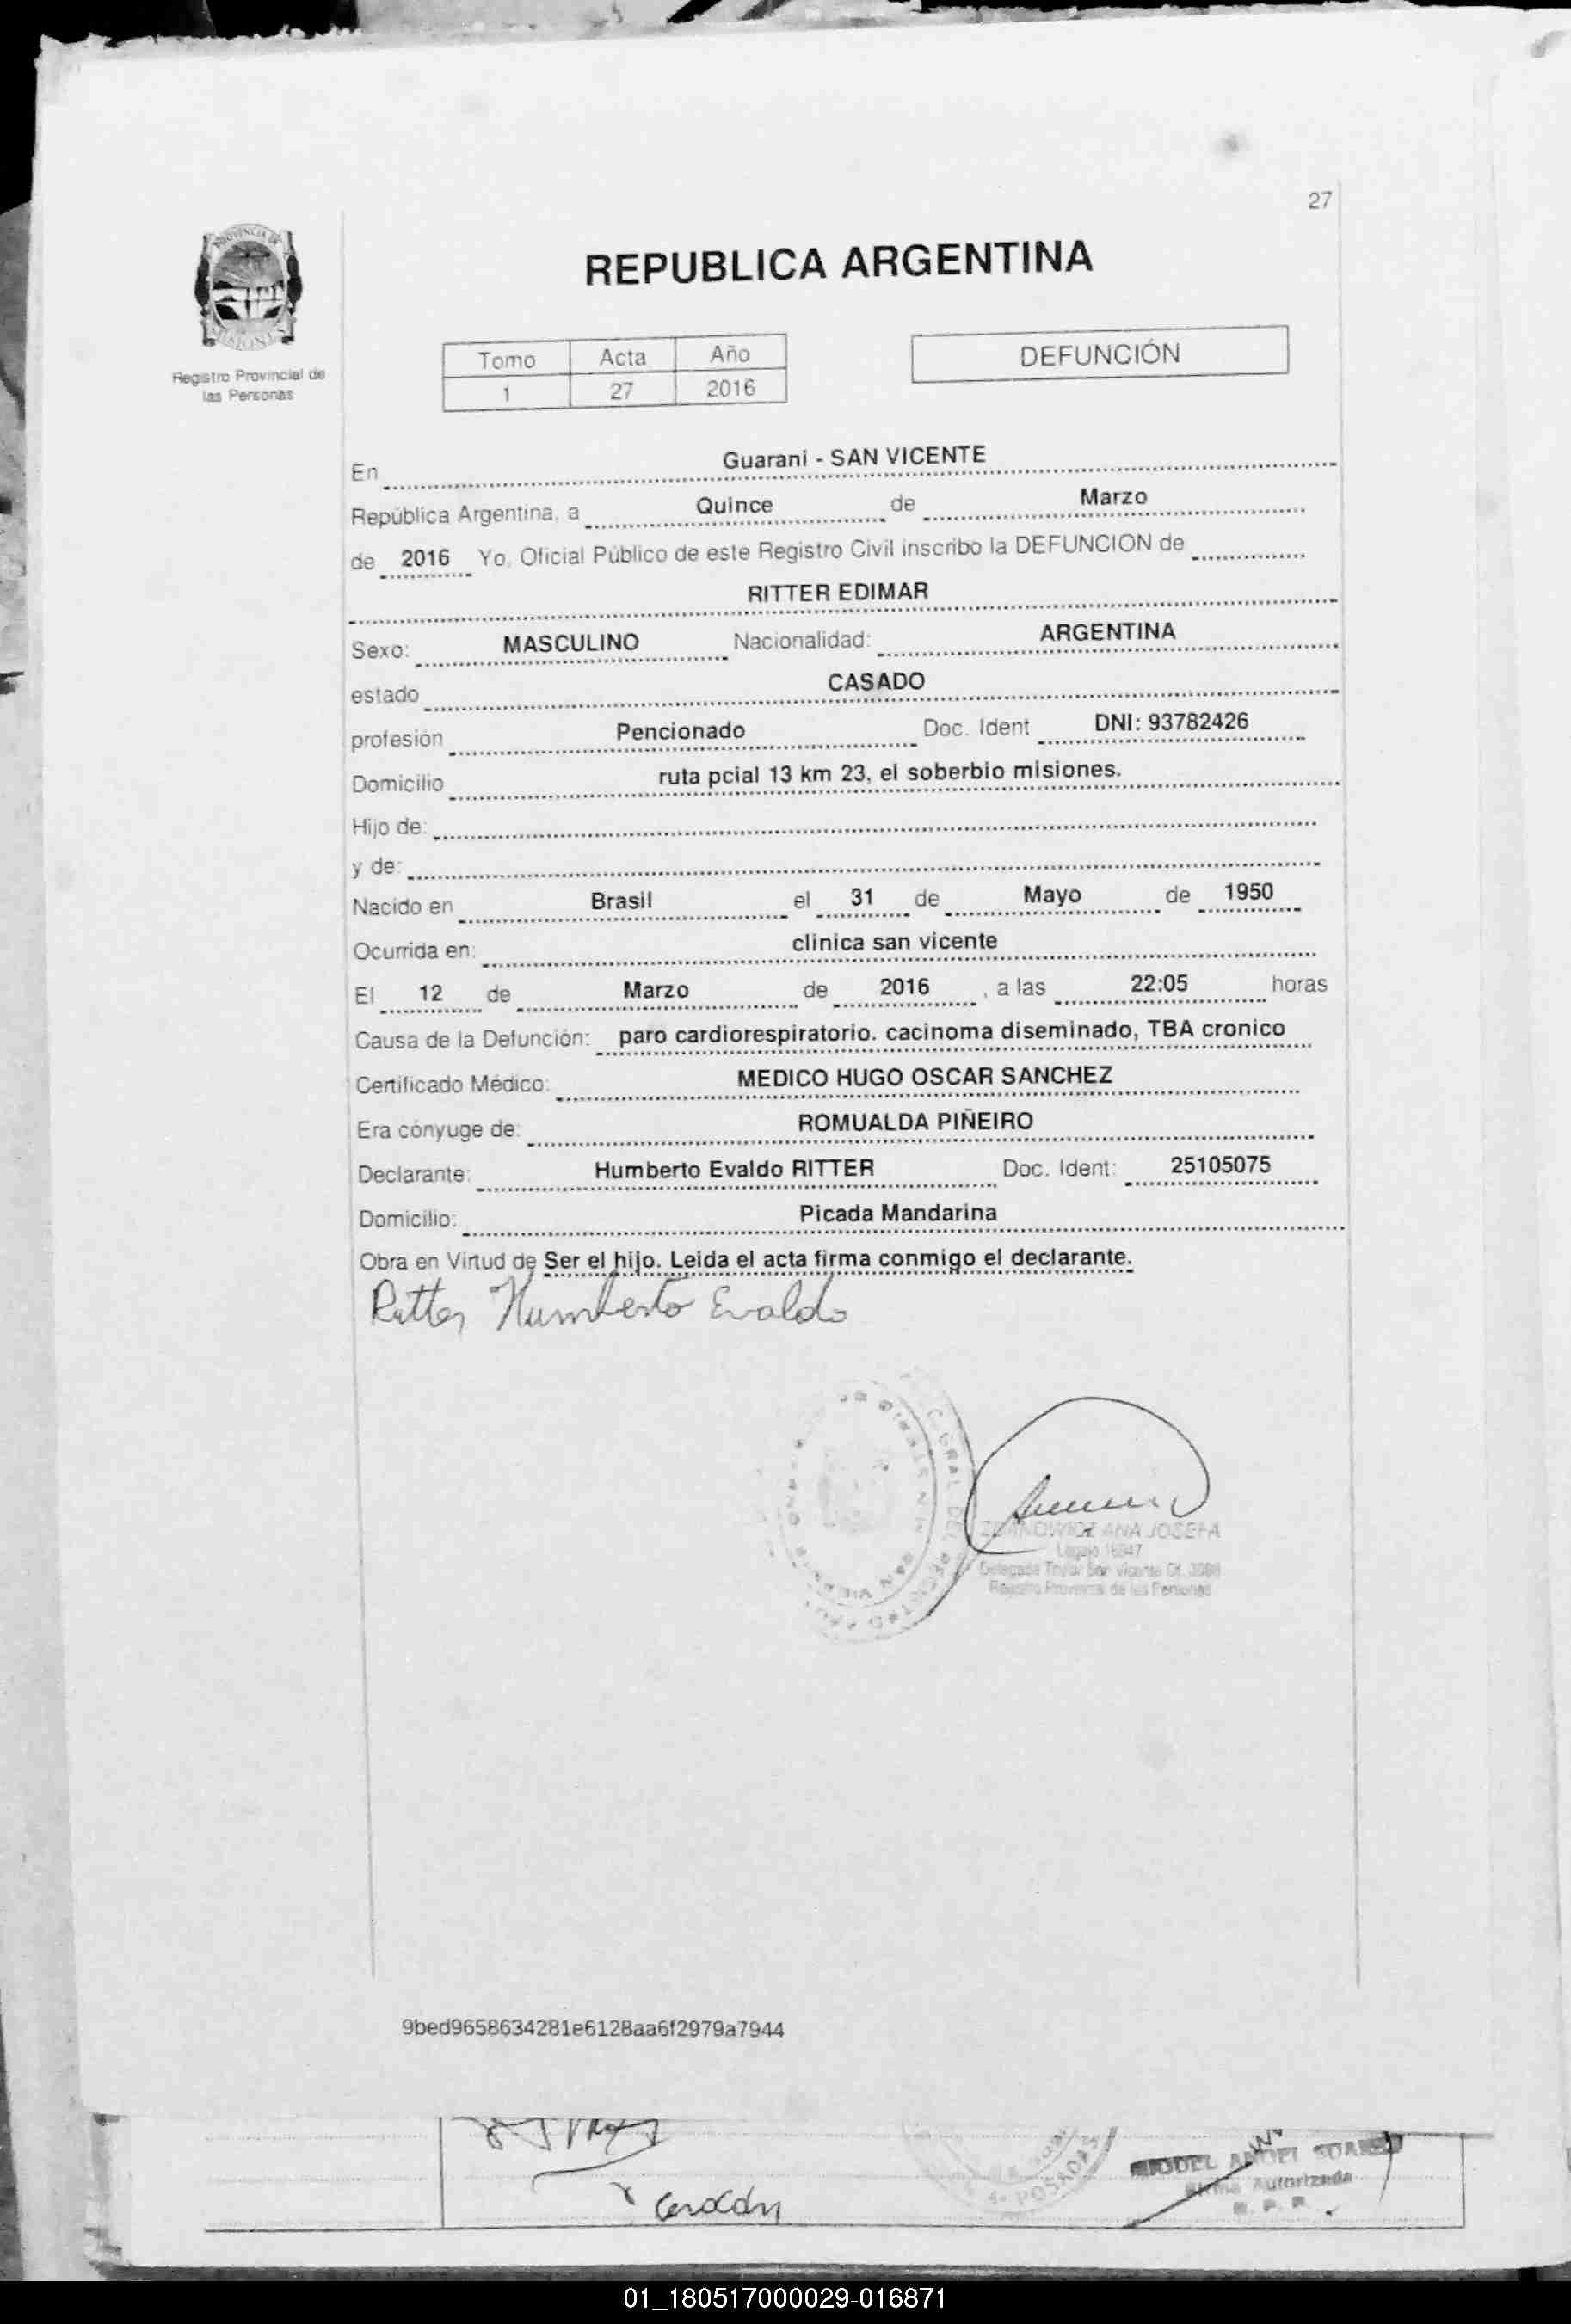 27
PROVINCIA DE
MISIONES
Registro Provincial de
las Personas
REPUBLICA ARGENTINA
Tomo Acta Año
1 27 2016
DEFUNCIÓN
En Guarani - SAN VICENTE
República Argentina, a Quince de Marzo
de 2016 Yo, Oficial Público de este Registro Civil inscribo la DEFUNCION de
RITTER EDIMAR
Sexo: MASCULINO Nacionalidad: ARGENTINA
estado CASADO
profesión Pencionado Doc. Ident DNI: 93782426
Domicilio ruta pcial 13 km 23, el soberbio misiones.
Hijo de:
y de:
Nacido en Brasil el 31 de Mayo de 1950
Ocurrida en: clinica san vicente
El 12 de Marzo de 2016 , a las 22:05 horas
Causa de la Defunción: paro cardiorespiratorio. cacinoma diseminado, TBA cronico
Certificado Médico: MEDICO HUGO OSCAR SANCHEZ
Era cónyuge de: ROMUALDA PIÑEIRO
Declarante: Humberto Evaldo RITTER Doc. Ident: 25105075
Domicilio: Picada Mandarina
Obra en Virtud de Ser el hijo. Leida el acta firma conmigo el declarante.
Ritter Humberto Evaldo
ANA JOSEFA
Registro Provincial de las Personas
9bed9658634281e6128aa6f2979a7944
POSADAS
MIGUEL ANGEL SUAREZ
Firma Autorizada
R. P. P.
01_180517000029-016871